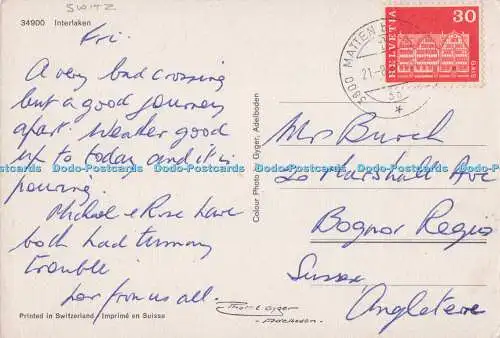 SWITZ
34900 Interlaken
Fri.
A very bad crossing
but a good journey
apart. Weather good
up to today and it is
pouring.
Michael & Rose have
both had tummy
trouble
Love from us all.
Printed in Switzerland - Imprimé en Suisse
Colour Photo Gyger, Adelboden
Gyger
Adelboden
3800 MATTEN
21-8
HELVETIA
30
GAIS
Mrs Burch
20 Marshall Ave
Bognor Regis
Sussex
Angleterre
Dodo-Postcards www.Dodo-Postcards.com